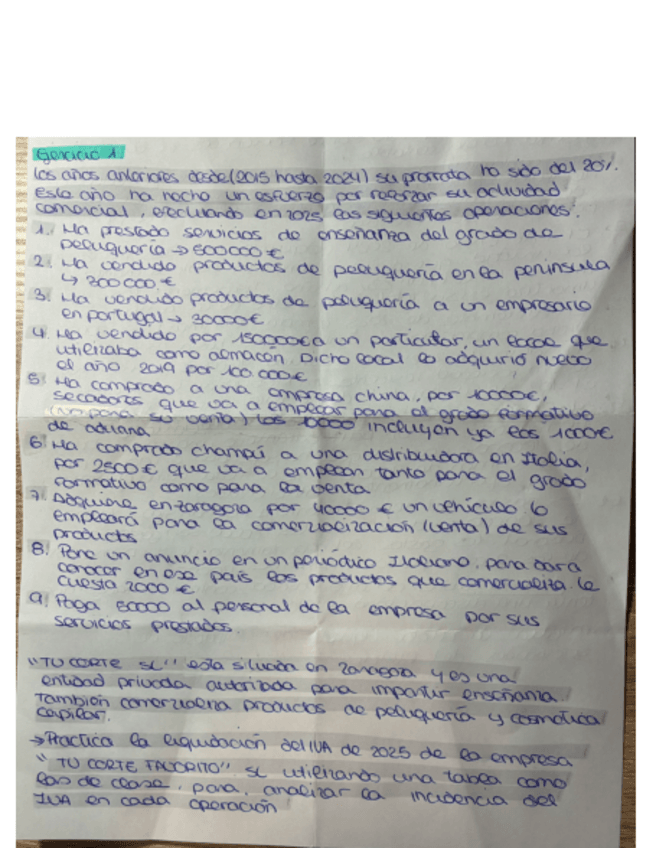 Ejercicio 1.
Los años anteriores desde (2015 hasta 2024) su prorrata ha sido del 20%.
Este año ha hecho un esfuerzo por reforzar su actividad
comercial, efectuando en 2025 las siguientes operaciones:
1. Ha prestado servicios de enseñanza del grado de
peluquería → 500000 €
2. Ha vendido productos de peluquería en la península
↳ 300000 €
3. Ha vendido productos de peluquería a un empresario
en portugal → 30000€
4. Ha vendido por 150000€ a un particular, un local que
utilizaba como almacén. Dicho local lo adquirió nuevo
el año 2019 por 100 000€
5. Ha comprado a una empresa china, por 10000€,
secadores que va a emplear para el grado formativo
(no para su venta) Los 10000 incluyen ya los 1000€
de aduana.
6. Ha comprado champú a una distribuidora en Italia,
por 2500€ que va a emplear tanto para el grado
formativo como para la venta
7. Adquiere en zaragoza por 40000 € un vehículo lo
empleará para la comercialización (venta) de sus
productos
8. Pone un anuncio en un periódico Italiano, para dar a
conocer en ese país los productos que comercializa. le
cuesta 2000 €
9. Paga 50000 al personal de la empresa por sus
servicios prestados.
"TU CORTE SL" esta situada en Zaragoza y es una
entidad privada autorizada para impartir enseñanza.
También comercializa productos de peluquería y cosmética
capilar.
→ Practica la liquidación del IVA de 2025 de la empresa
"TU CORTE FAVORITO" SL utilizando una tabla como
las de clase, para, analizar la incidencia del
IVA en cada operación